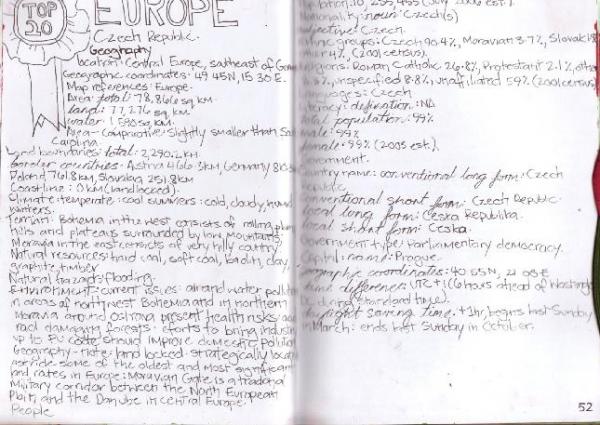 TOP 20
EUROPE
Czech Republic
Geography
location: Central Europe, southeast of
Geographic coordinates: 49 45 N, 15 30 E.
Map references: Europe.
Area: total: 78,866 sq km.
land: 77,276 sq km.
water: 1590 sq km.
Area - Comparative: slightly smaller than
Carolina.
Land boundaries: total: 2,290.2 km.
border countries: Austria 466.3 km, Germany
Poland 761.8 km, Slovakia 251.8 km
Coastline: 0 km (landlocked).
Climate: temperate: cool summers: cold, cloudy, humid
winters.
Terrain: Bohemia in the west consists of rolling
hills and plateaus surrounded by low mountains:
Moravia in the east consists of very hilly country
Natural resources: hard coal, soft coal, kaolin, clay,
graphite, timber
Natural hazards: flooding.
Environment - current issues: air and water
in areas of northwest Bohemia and in northern
Moravia around Ostrava present health risks:
acid damaging forests: efforts to bring
up to EU code should improve domestic
Geography - note: land locked: strategically
astride some of the oldest and most significant
land routes in Europe: Moravian Gate is a
military corridor between the North European
Plain and the Danube in central Europe.
People
10,235,455 (July 2006 est.).
Nationality: noun: Czech(s)
adjective: Czech
ethnic groups: Czech 90.4%, Moravian 3.7%, Slovak
4%, (2001 census).
religions: Roman Catholic 26.8%, Protestant 2.1%,
unspecified 8.8%, unaffiliated 59% (2001 census)
languages: Czech
literacy: definition: NA
total population: 99%
male: 99%
female: 99% (2005 est.).
Government.
Country name: conventional long form: Czech
Republic
conventional short form: Czech Republic
local long form: Ceska Republika
local short form: Ceska.
Government type: Parliamentary democracy.
Capital: name: Prague.
geographic coordinates: 40 55 N, 21 00 E
time difference: UTC +1 (6 hours ahead of
DC, during standard time).
daylight saving time: +1hr, begins last Sunday
in March: ends last Sunday in October.
52